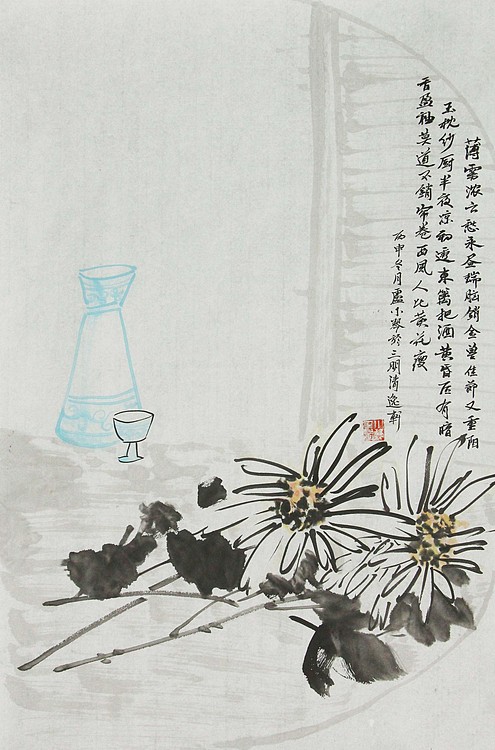 薄雾浓云愁永昼瑞脑销金兽佳節又重阳
玉枕纱厨半夜凉初透東篱把酒黄昏后有暗
香盈袖莫道不銷帘卷西風人比黄花瘦
丙申冬月盧小琴於三明清逸軒